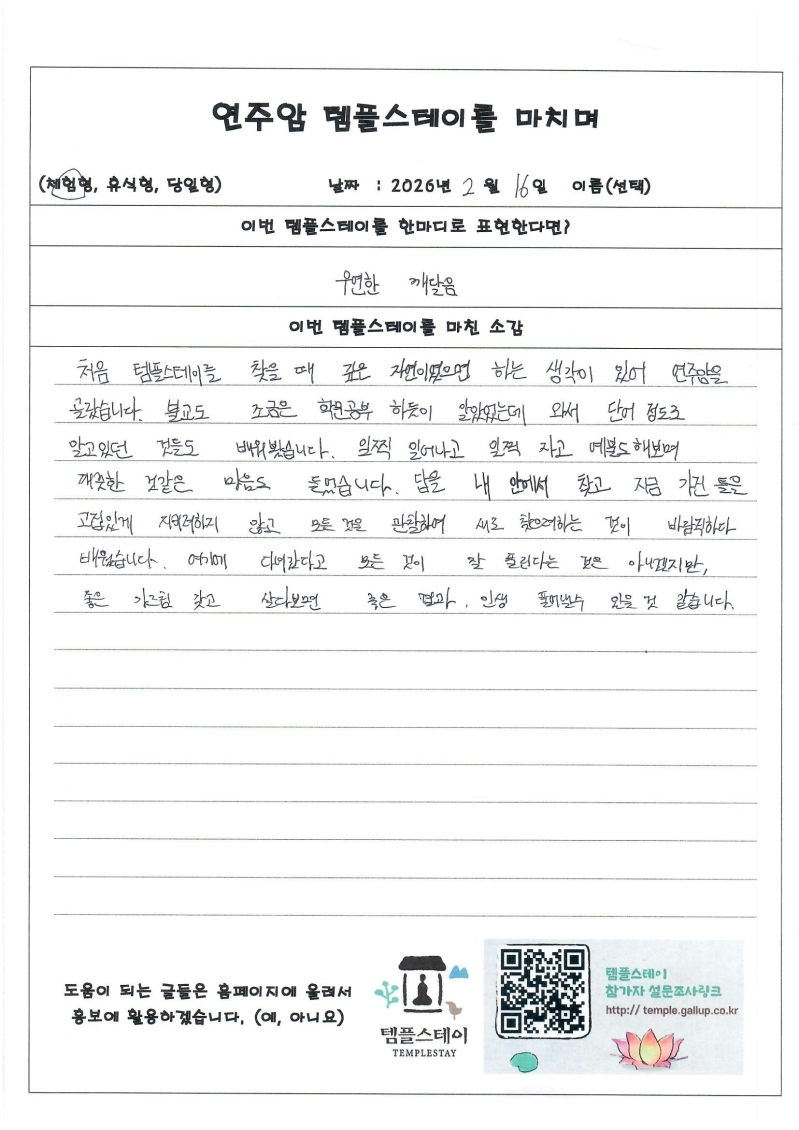 연주암 템플스테이를 마치며
(체험형, 휴식형, 당일형) 날짜 : 2026년 2 월 16일 이름(선택)
이번 템플스테이를 한마디로 표현한다면?
우연한 깨달음
이번 템플스테이를 마친 소감
처음 템플스테이를 찾을 때 깊은 자연이였으면 하는 생각이 있어 연주암을
골랐습니다. 불교도 조금은 학문공부 하듯이 알았었는데 와서 단어 정도로
알고있던 것들도 배워봤습니다. 일찍 일어나고 일찍 자고 예불도해보며
깨끗한 것같은 마음도 들었습니다. 답을 내 안에서 찾고 지금 가진 틀은
고집있게 지키려하지 않고 모든 것을 관찰하여 새로 찾으려하는 것이 바람직하다
배웠습니다. 여기에 다녀갔다고 모든 것이 잘 풀린다는 것은 아니겠지만,
좋은 가르침 갖고 살다보면 좋은 결과, 인생 풀어낼수 있을 것 같습니다.
도움이 되는 글들은 홈페이지에 올려서
홍보에 활용하겠습니다. (예, 아니요)
템플스테이
TEMPLESTAY
템플스테이
참가자 설문조사링크
http:// temple.gallup.co.kr